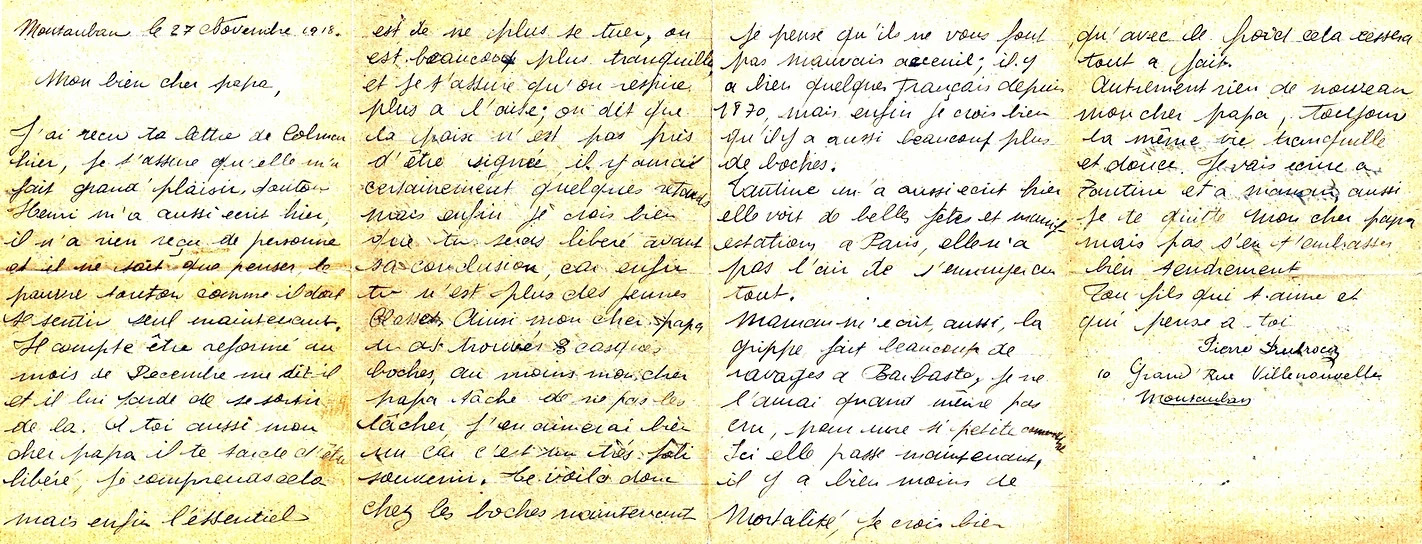 Montauban le 27 Novembre 1918.
Mon bien cher papa,
J'ai reçu ta lettre de Colmar
hier, je t'assure qu'elle m'a
fait grand plaisir, tonton
Henri m'a aussi ecrit hier,
il n'a rien reçu de personne
et il ne sait que penser, le
pauvre tonton comme il doit
se sentir seul maintenant.
Il compte être reformé au
mois de Decembre me dit il
et il lui tarde de se sortir
de la. A toi aussi mon
cher papa il te tarde d'être
libéré, je comprends cela
mais enfin l'éssentiel
est de ne plus se tuer, on
est beaucoup plus tranquille
et je t'assure qu'on respire
plus a l'aise; on dit que
la paix n'est pas près
d'être signée, il y aurait
certainement quelques retards
mais enfin je crois bien
que tu seras libéré avant
sa conclusion, car enfin
tu n'est plus des jeunes
classes. Ainsi mon cher papa
tu as trouver 2 casques
boches, au moins mon cher
papa tâche de ne pas les
lâcher, j'en aimerai bien
un car c'est un très joli
souvenir. Te voilà donc
chez les boches maintenant
je pense qu'ils ne vous font
pas mauvais acceuil; il y
a bien quelques Français depuis
1870, mais enfin je crois bien
qu'il y a aussi beaucoup plus
de boches.
Tantine m'a aussi ecrit hier
elle voit de belles fêtes et manif
estations a Paris, elle n'a
pas l'air de s'ennuyer du
tout.
Maman m'ecrit aussi, la
grippe fait beaucoup de
ravages a Barbaste, je ne
l'aurai quand même pas
cru, pour une si petite
Ici elle passe maintenant,
il y a bien moins de
Mortalité, je crois bien
qu'avec le froid cela cessera
tout a fait.
Autrement rien de nouveau
mon cher papa, toujours
la même vie tranquille
et douce. Je vais ecrire a
Tantine et a maman aussi
je te quitte mon cher papa
mais pas s'en t'embrasser
bien tendrement
Ton fils qui t'aime et
qui pense a toi
Pierre
10 Grand' Rue Villenouvelle
Montauban